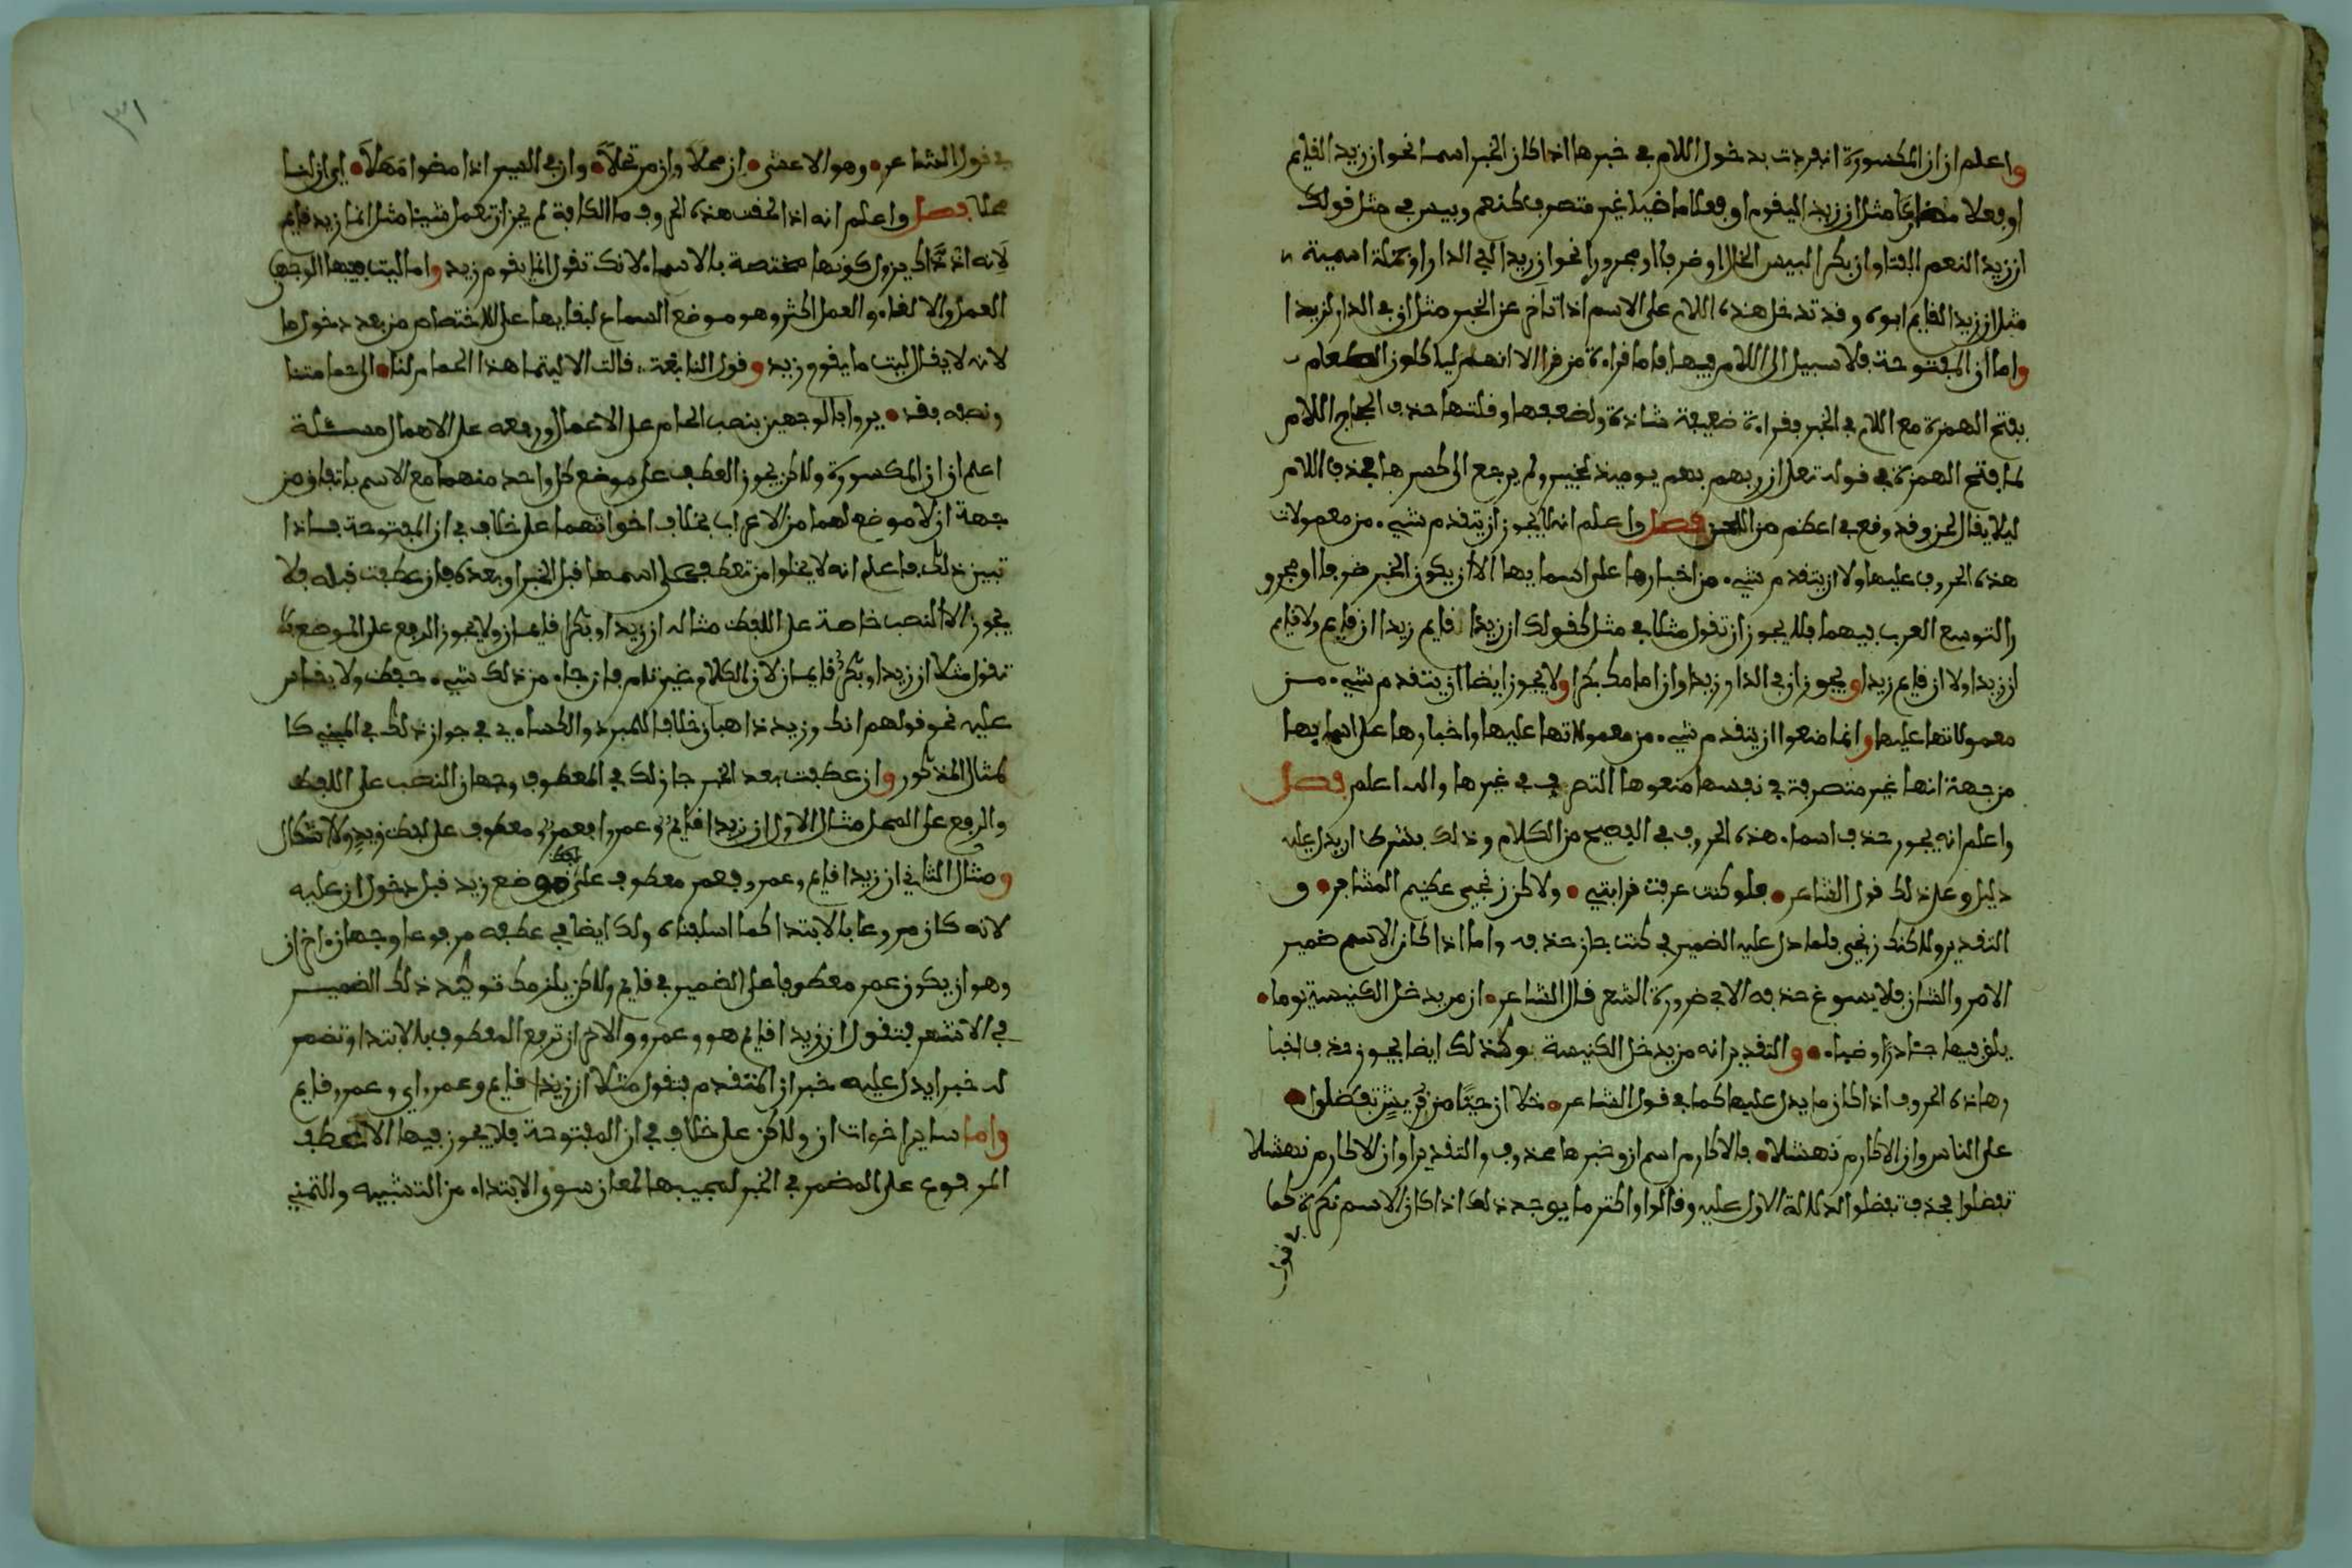 واعلم ان ان المكسورة انفردت بدخول اللام في خبرها اذا كان الخبر اسما نحو ان زيدا لقايم
او فعلا مضارعا مثل ان زيدا ليقوم او فعلا ماضيا غير متصرف كنعم وبيس في مثل قولك
ان زيدا لنعم الفتا وان بكرا لبيس الخل او ضرفا او مجرورا نحو ان زيدا لفي الدار او جملة اسمية
مثل ان زيدا لقايم ابوه وقد تدخل هذه اللام على الاسم اذا تاخر عن الخبر مثل ان في الدار لزيدا
واما ان المفتوحة فلا سبيل الى اللام فيها فاما قراءة من قرا الا انهم لياكلون الطعام
بفتح الهمزة مع اللام في الخبر فقراءة ضعيفة شاذة ولضعفها وقلتها حذف الحجاج اللام
لما فتح الهمزة في قوله تعلى ان ربهم بهم يوميذ لخبير ولم يرجع الى كسرها فحذف اللام
ليلا يقال لحن وقد وقع في اعظم من اللحن فصل واعلم انه لا يجوز ان يتقدم شيء من معمولات
هذه الحروف عليها ولا ان يتقدم شيء من اخبارها على اسمايها الا ان يكون الخبر ضرفا او مجرو
را لتوسع العرب فيهما فلا يجوز ان تقول مثلا في مثل كقولك ان زيدا قايم زيدا ان قايم ولا قايم
ان زيدا ولا ان قايم زيدا ويجوز ان في الدار زيدا وان امامك بكرا ولا يجوز ايضا ان يتقدم شيء من
معمولاتها عليها وانما ضعوا ان يتقدم شيء من معمولاتها عليها واخبارها على اسمايها
من جهة انها غير متصرفة في نفسها منعوها التصرف في غيرها والله اعلم فصل
واعلم انه يجوز حذف اسماء هذه الحروف في الفصيح من الكلام وذلك بشرط ان يدل عليه
دليل وعلى ذلك قول الشاعر فلو كنت عرفت قرابتي ولاكن زنجي عظيم المشافر و
التقدير ولاكنك زنجي فلما دل عليه الضمير في كنت جاز حذفه واما اذا كان الاسم ضمير
الامر والشان فلا يسوغ حذفه الا في ضرورة الشعر قال الشاعر ان من يدخل الكنيسة يوما
يلق فيها جئاذرا وضباء والتقدير انه من يدخل الكنيسة وكذلك ايضا يجوز حذف اخبا
رهاذه الحروف اذا كان ما يدل عليها كما في قول الشاعر خلا ان حيا من قريش تفضلوا
على الناس وان الاكارم نهشلا فالاكارم اسم ان وخبرها محذوف والتقدير او ان الاكارم نهشلا
تفضلوا فحذف تفضلوا لدلالة الاول عليه وقالوا واكثر ما يوجد ذلك اذا كان الاسم نكرة كما
في قول
٣١
في قول الشاعر وهو الاعشى ان محلا وان مرتحلا وان في السير اذا مضوا مهلا اي ان لنا
محلا فصل واعلم انه اذا لحقت هذه الحروف ما الكافة لم يجز ان تعمل شيئا مثل انما زيد قايم
لانه اذ ذاك يزول كونها مختصة بالاسماء لانك تقول انما يقوم زيد واما ليت ففيها الوجهان
العمل والالغاء والعمل اكثر وهو موضع السماع لبقايها على الاختصاص من بعد دخول ما
لانه لا يقال ليت ما يقوم زيد وقول النابغة قالت الا ليتما هذا الحمام لنا الى حمامتنا
ونصفه فقد يروا بالوجهين بنصب الحمام على الاعمال ورفعه على الاهمال مسئلة
اعلم ان ان المكسورة ولاكن يجوز العطف على موضع كل واحد منهما مع الاسم باتفاق من
جهة ان لا موضع لهما من الاعراب بخلاف اخواتهما على خلاف في ان المفتوحة فاذا
تبين ذلك فاعلم انه لا يخلوا من تعطف على اسمها قبل الخبر او بعده فان عطفت قبله فلا
يجوز الا النصب خاصة على اللفظ مثاله ان زيدا وبكرا قايمان ولا يجوز الرفع على الموضع لا
تقول مثلا ان زيدا وبكر قايمان لان الكلام غير تام فان جاء من ذلك شيء حفظ ولا يقاس
عليه نحو قولهم انك وزيد ذاهبان خلافا للمبرد والكساءي في جواز ذلك في المبني كا
لمثال المذكور وان عطفت بعد الخبر جاز لك في المعطوف وجهان النصب على اللفظ
والرفع على المحل مثال الاول ان زيدا قايم وعمروا فعمرو معطوف على لفظ زيد ولا اشكال
ومثال الثاني ان زيدا قايم وعمرو فعمر معطوف على موضع زيد قبل دخول ان عليه
لانه كان مروعا بالابتدا كما اسلفناه ولك ايضا في عطفه مرفوعا وجهان اخران
وهو ان يكون عمر معطوفا على الضمير في قايم ولاكن يلزمك توكيد ذلك الضمير
في الاشهر فتقول ان زيدا قايم هو وعمرو والاخر ان ترفع المعطوف بالابتدا وتضمر
له خبرا يدل عليه خبر ان المتقدم فتقول مثلا ان زيدا قايم وعمرو اي وعمرو قايم
واما ساير اخوات ان ولاكن على خلاف في ان المفتوحة فلا يجوز فيها الا العطف
المرفوع على المضمر في الخبر لمجيبها لمعان سوى الابتداء من التشبيه والتمني